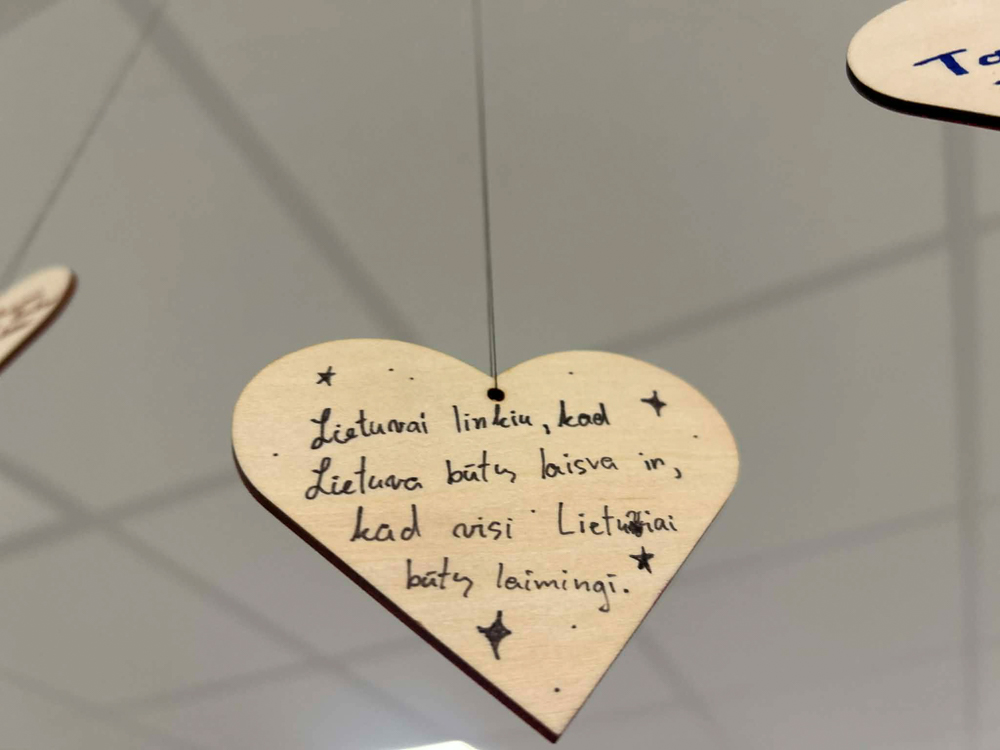 Lietuvai linkiu, kad
Lietuva būtų laisva ir,
kad visi Lietuviai
būtų laimingi.